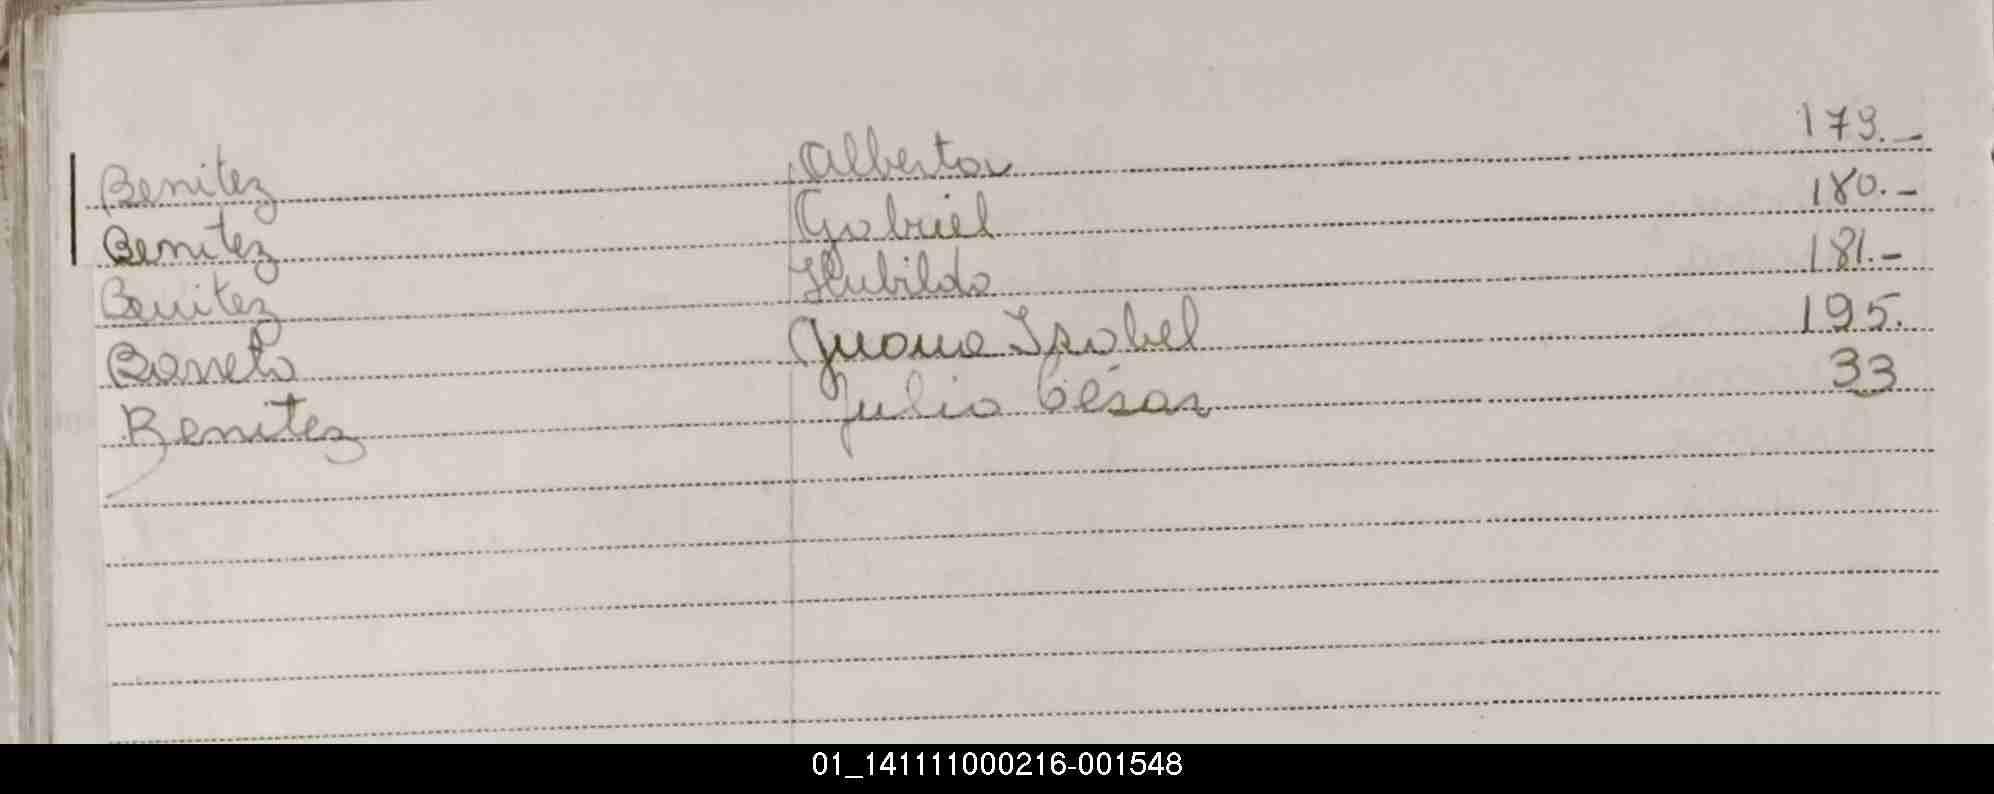 Benitez Alberto 179.-
Benitez Gabriel 180.-
Benitez Hubildo 181.-
Barreto Juana Isabel 195.
Benitez Julio César 33
01_141111000216-001548